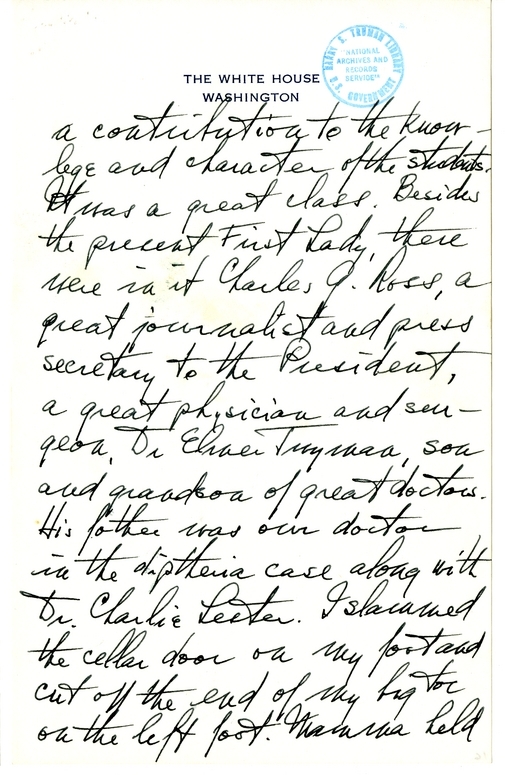 HARRY S. TRUMAN LIBRARY
"NATIONAL
ARCHIVES AND
RECORDS
SERVICE"
U.S. GOVERNMENT
THE WHITE HOUSE
WASHINGTON
a contribution to the know-
lege and character of the students.
It was a great class. Besides
the present First Lady, there
were in it Charles G. Ross, a
great journalist and press
secretary to the President,
a great physician and sur-
geon, Dr Elmer Twyman, son
and grandson of great doctors.
His father was our doctor
in the diptheria case along with
Dr. Charlie Lester. I slammed
the cellar door on my foot and
cut off the end of my big toe
on the left foot. Mamma held